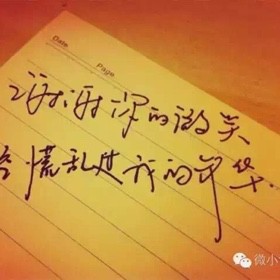 Date
Page
谢谢你的微笑
曾慌乱过我的年华
微小